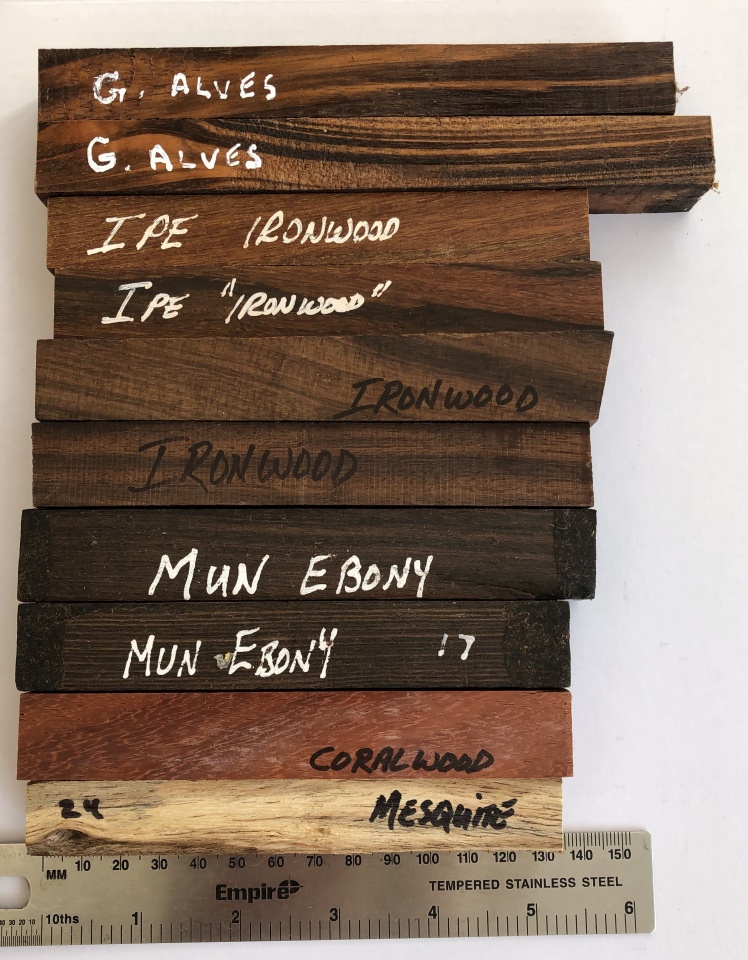 G. ALVES
G. ALVES
IPE IRONWOOD
IPE "IRONWOOD"
IRONWOOD
IRONWOOD
MUN EBONY
MUN EBONY 17
CORALWOOD
24 MESQUITE
MM 10 20 30 40 50 60 70 80 90 100 110 120 130 140 150
Empire TEMPERED STAINLESS STEEL
40 30 20 10 10ths 1 2 3 4 5 6